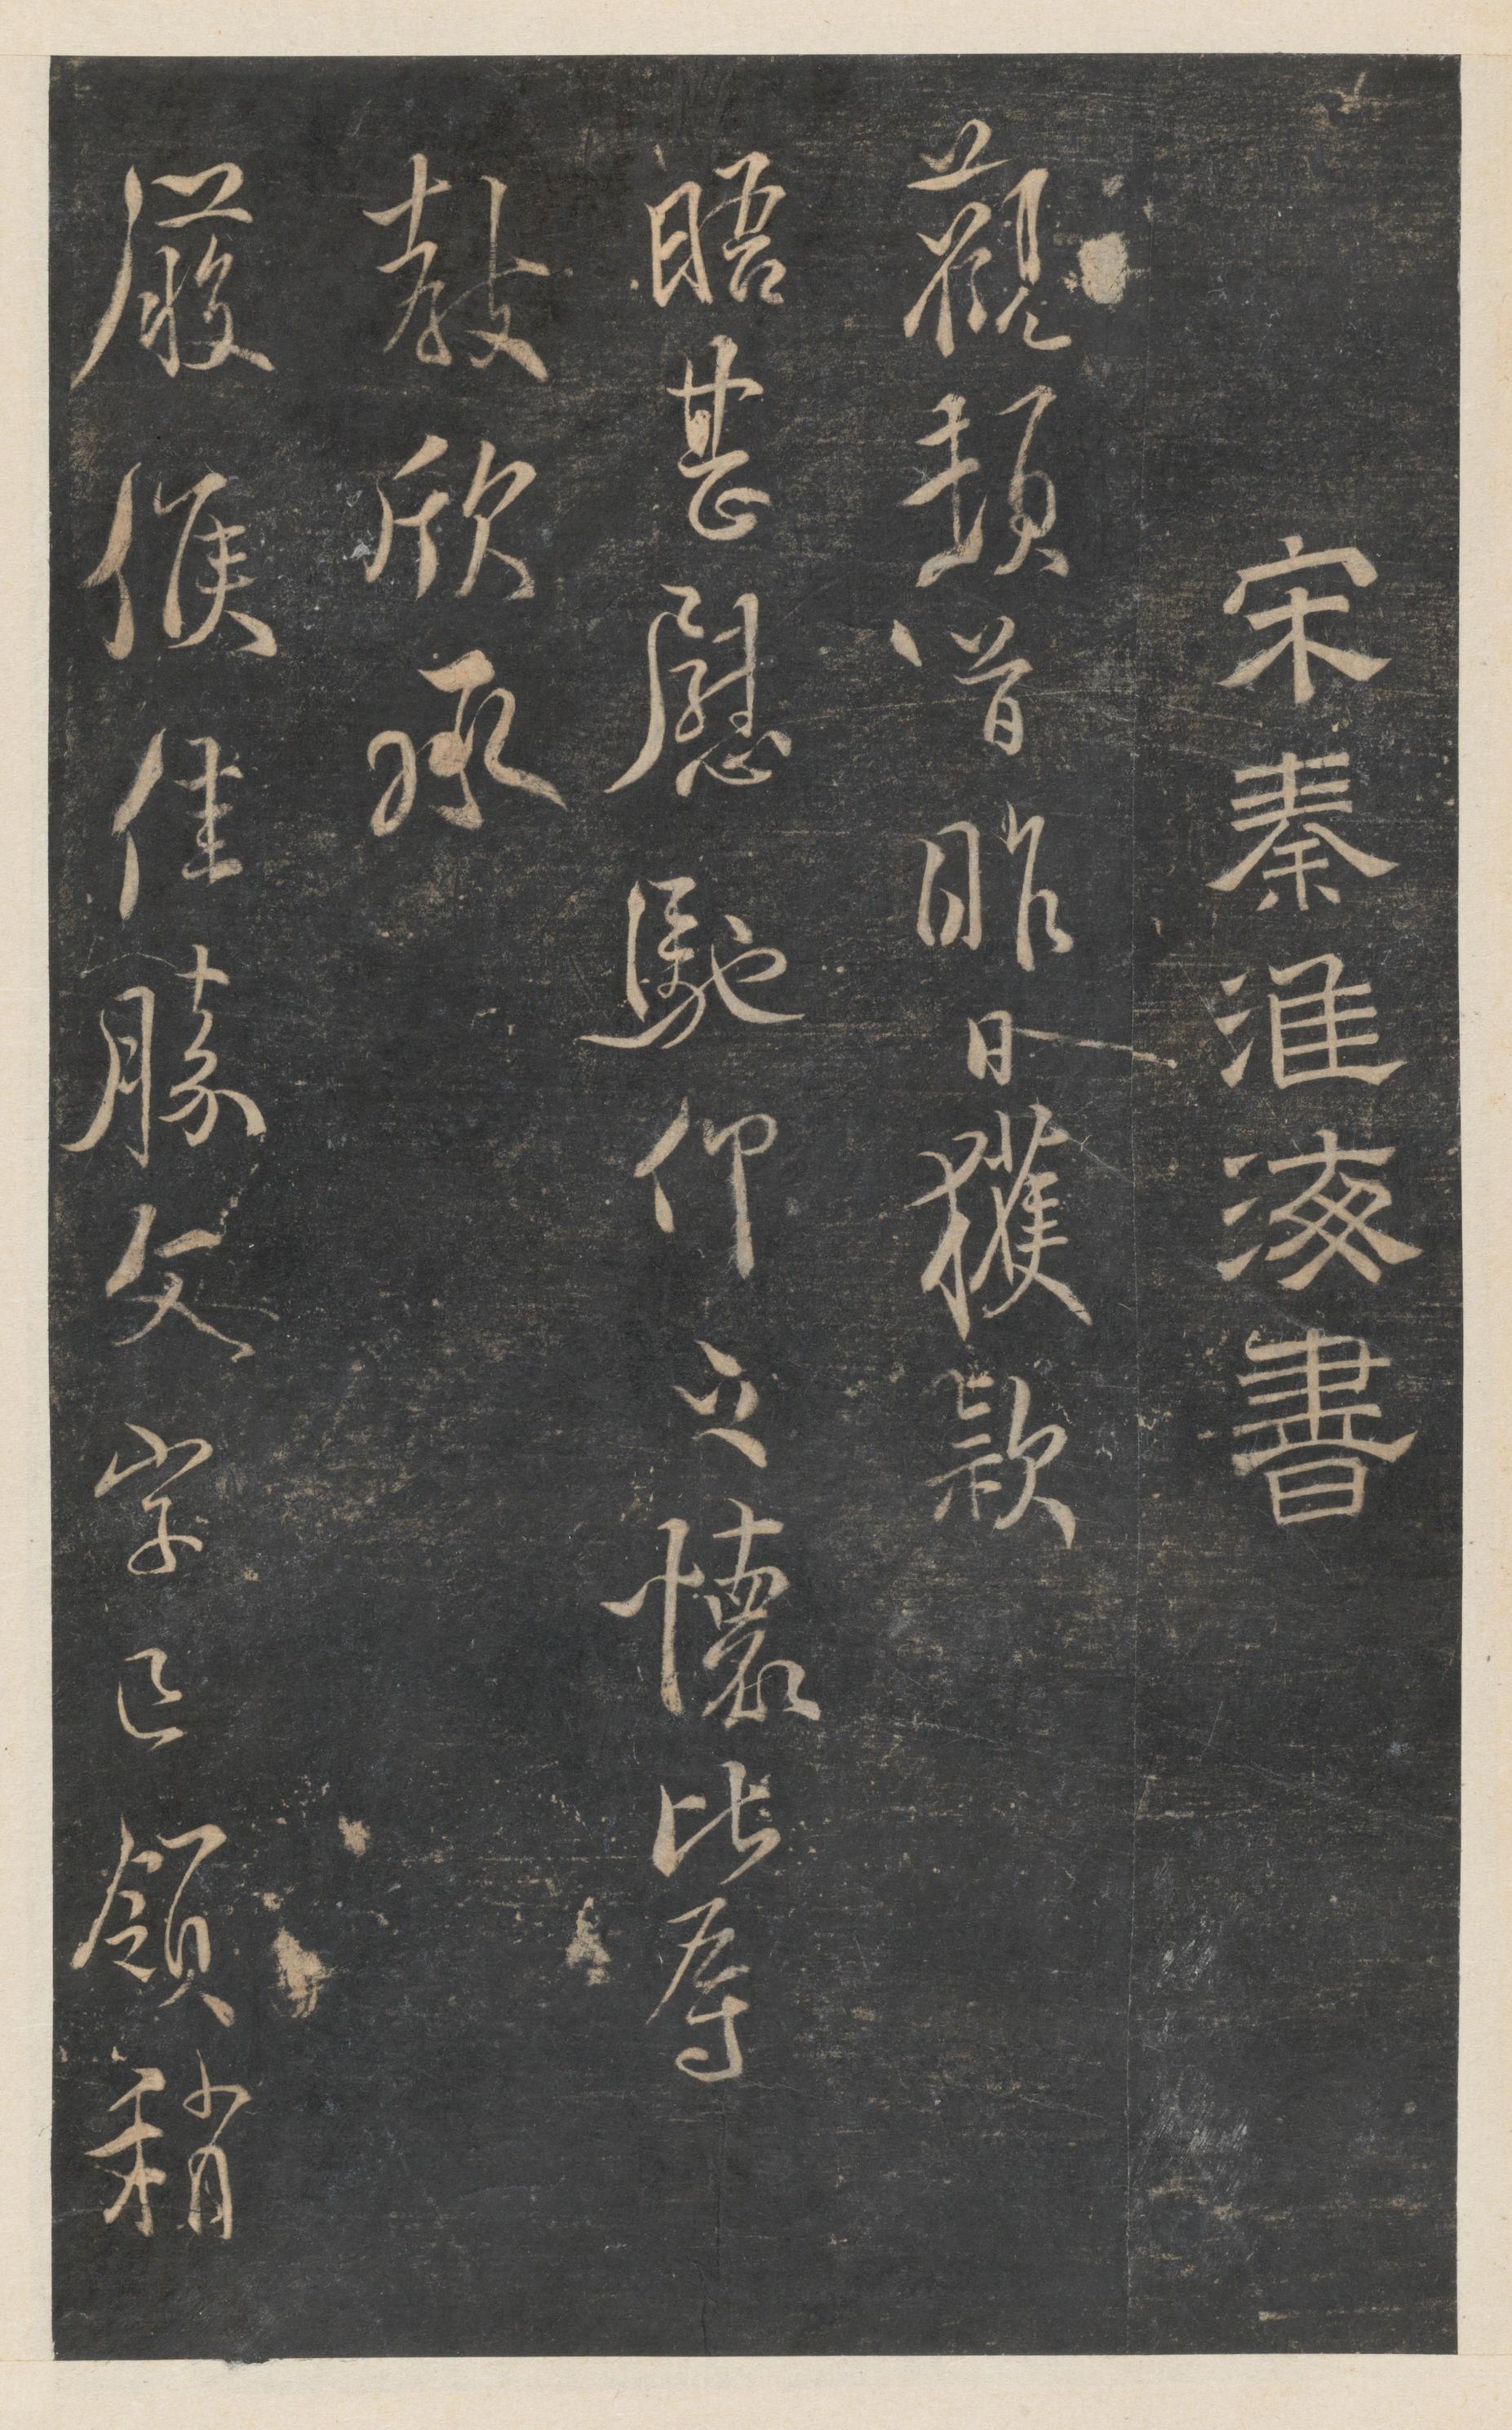 宋秦淮海書
觀頓首昨日獲款
晤甚慰馳仰之懷比辱
教欣承
履候佳勝文字已領稍